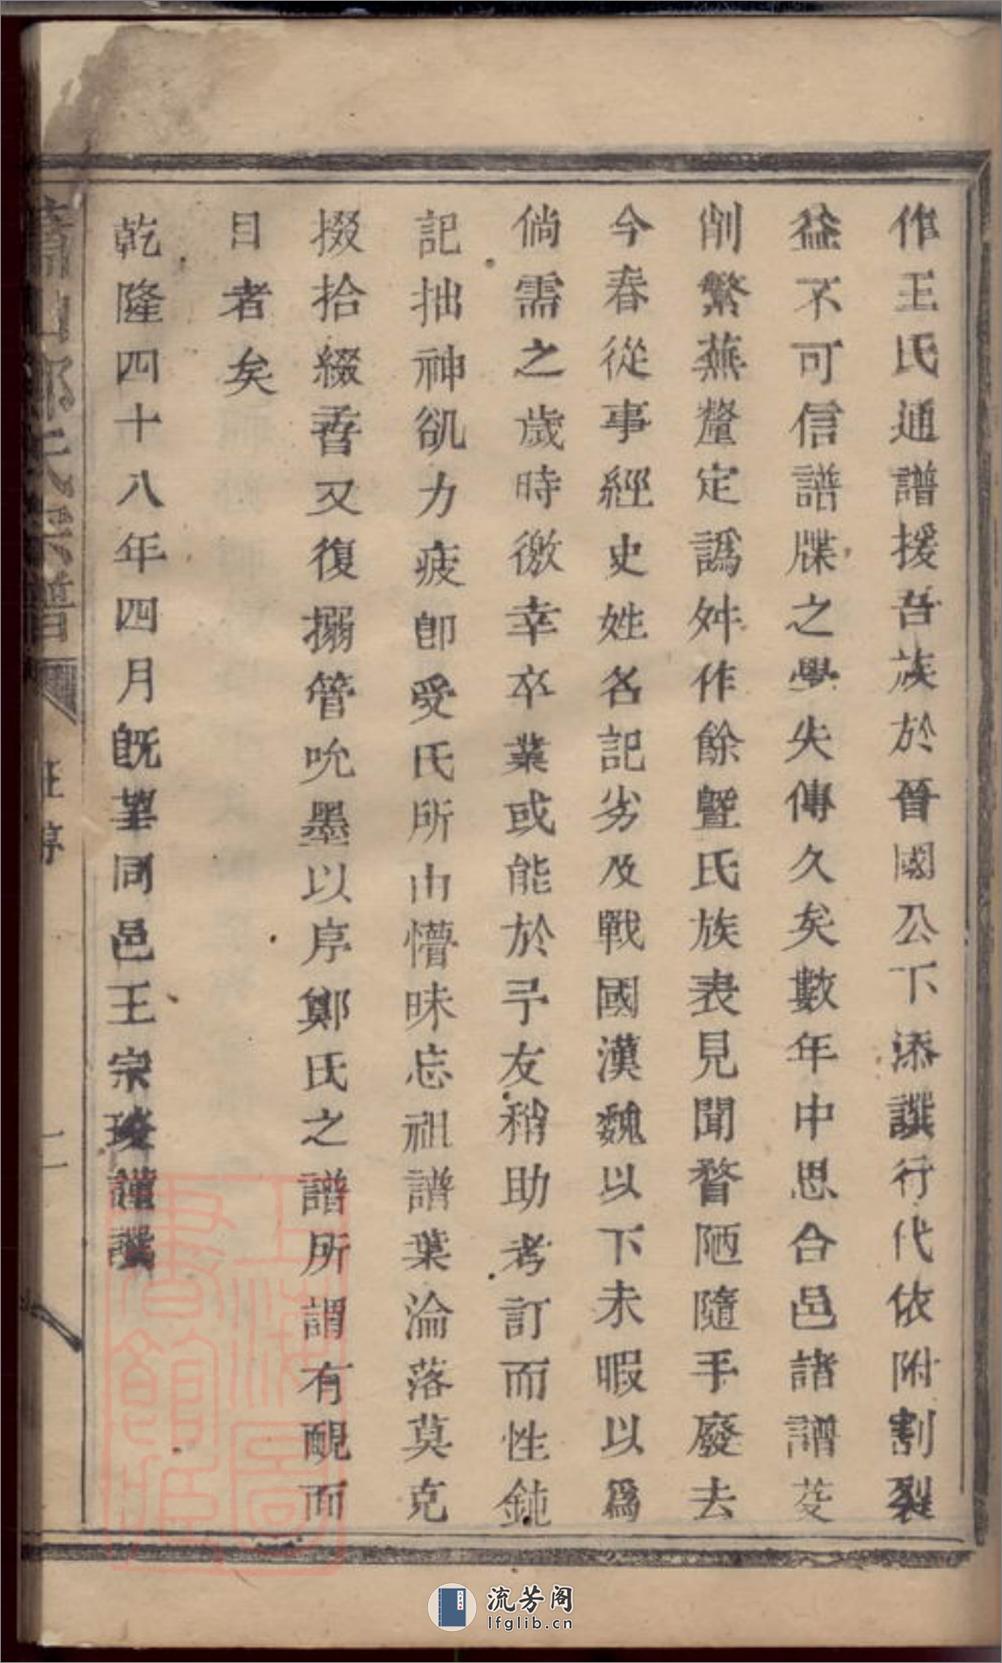 作王氏通譜援吾族於晉國公下添譔行代依附割裂
益不可信譜牒之學失傳久矣數年中思合邑諸譜芟
削繁蕪釐定譌舛作餘曁氏族表見聞瞀陋隨手廢去
今春從事經史姓名記劣及戰國漢魏以下未暇以爲
倘需之歲時徼幸卒業或能於予友稍助考訂而性鈍
記拙神欿力疲卽受氏所由懵昧忘祖譜葉淪落莫克
掇拾綴香又復搦管吮墨以序鄭氏之譜所謂有靦而
目者矣
乾隆四十八年四月旣望同邑王宗琰謹譔
蕭山鄭氏宗譜
汪序
二
上海圖
書館藏
流芳阁
lfglib.cn